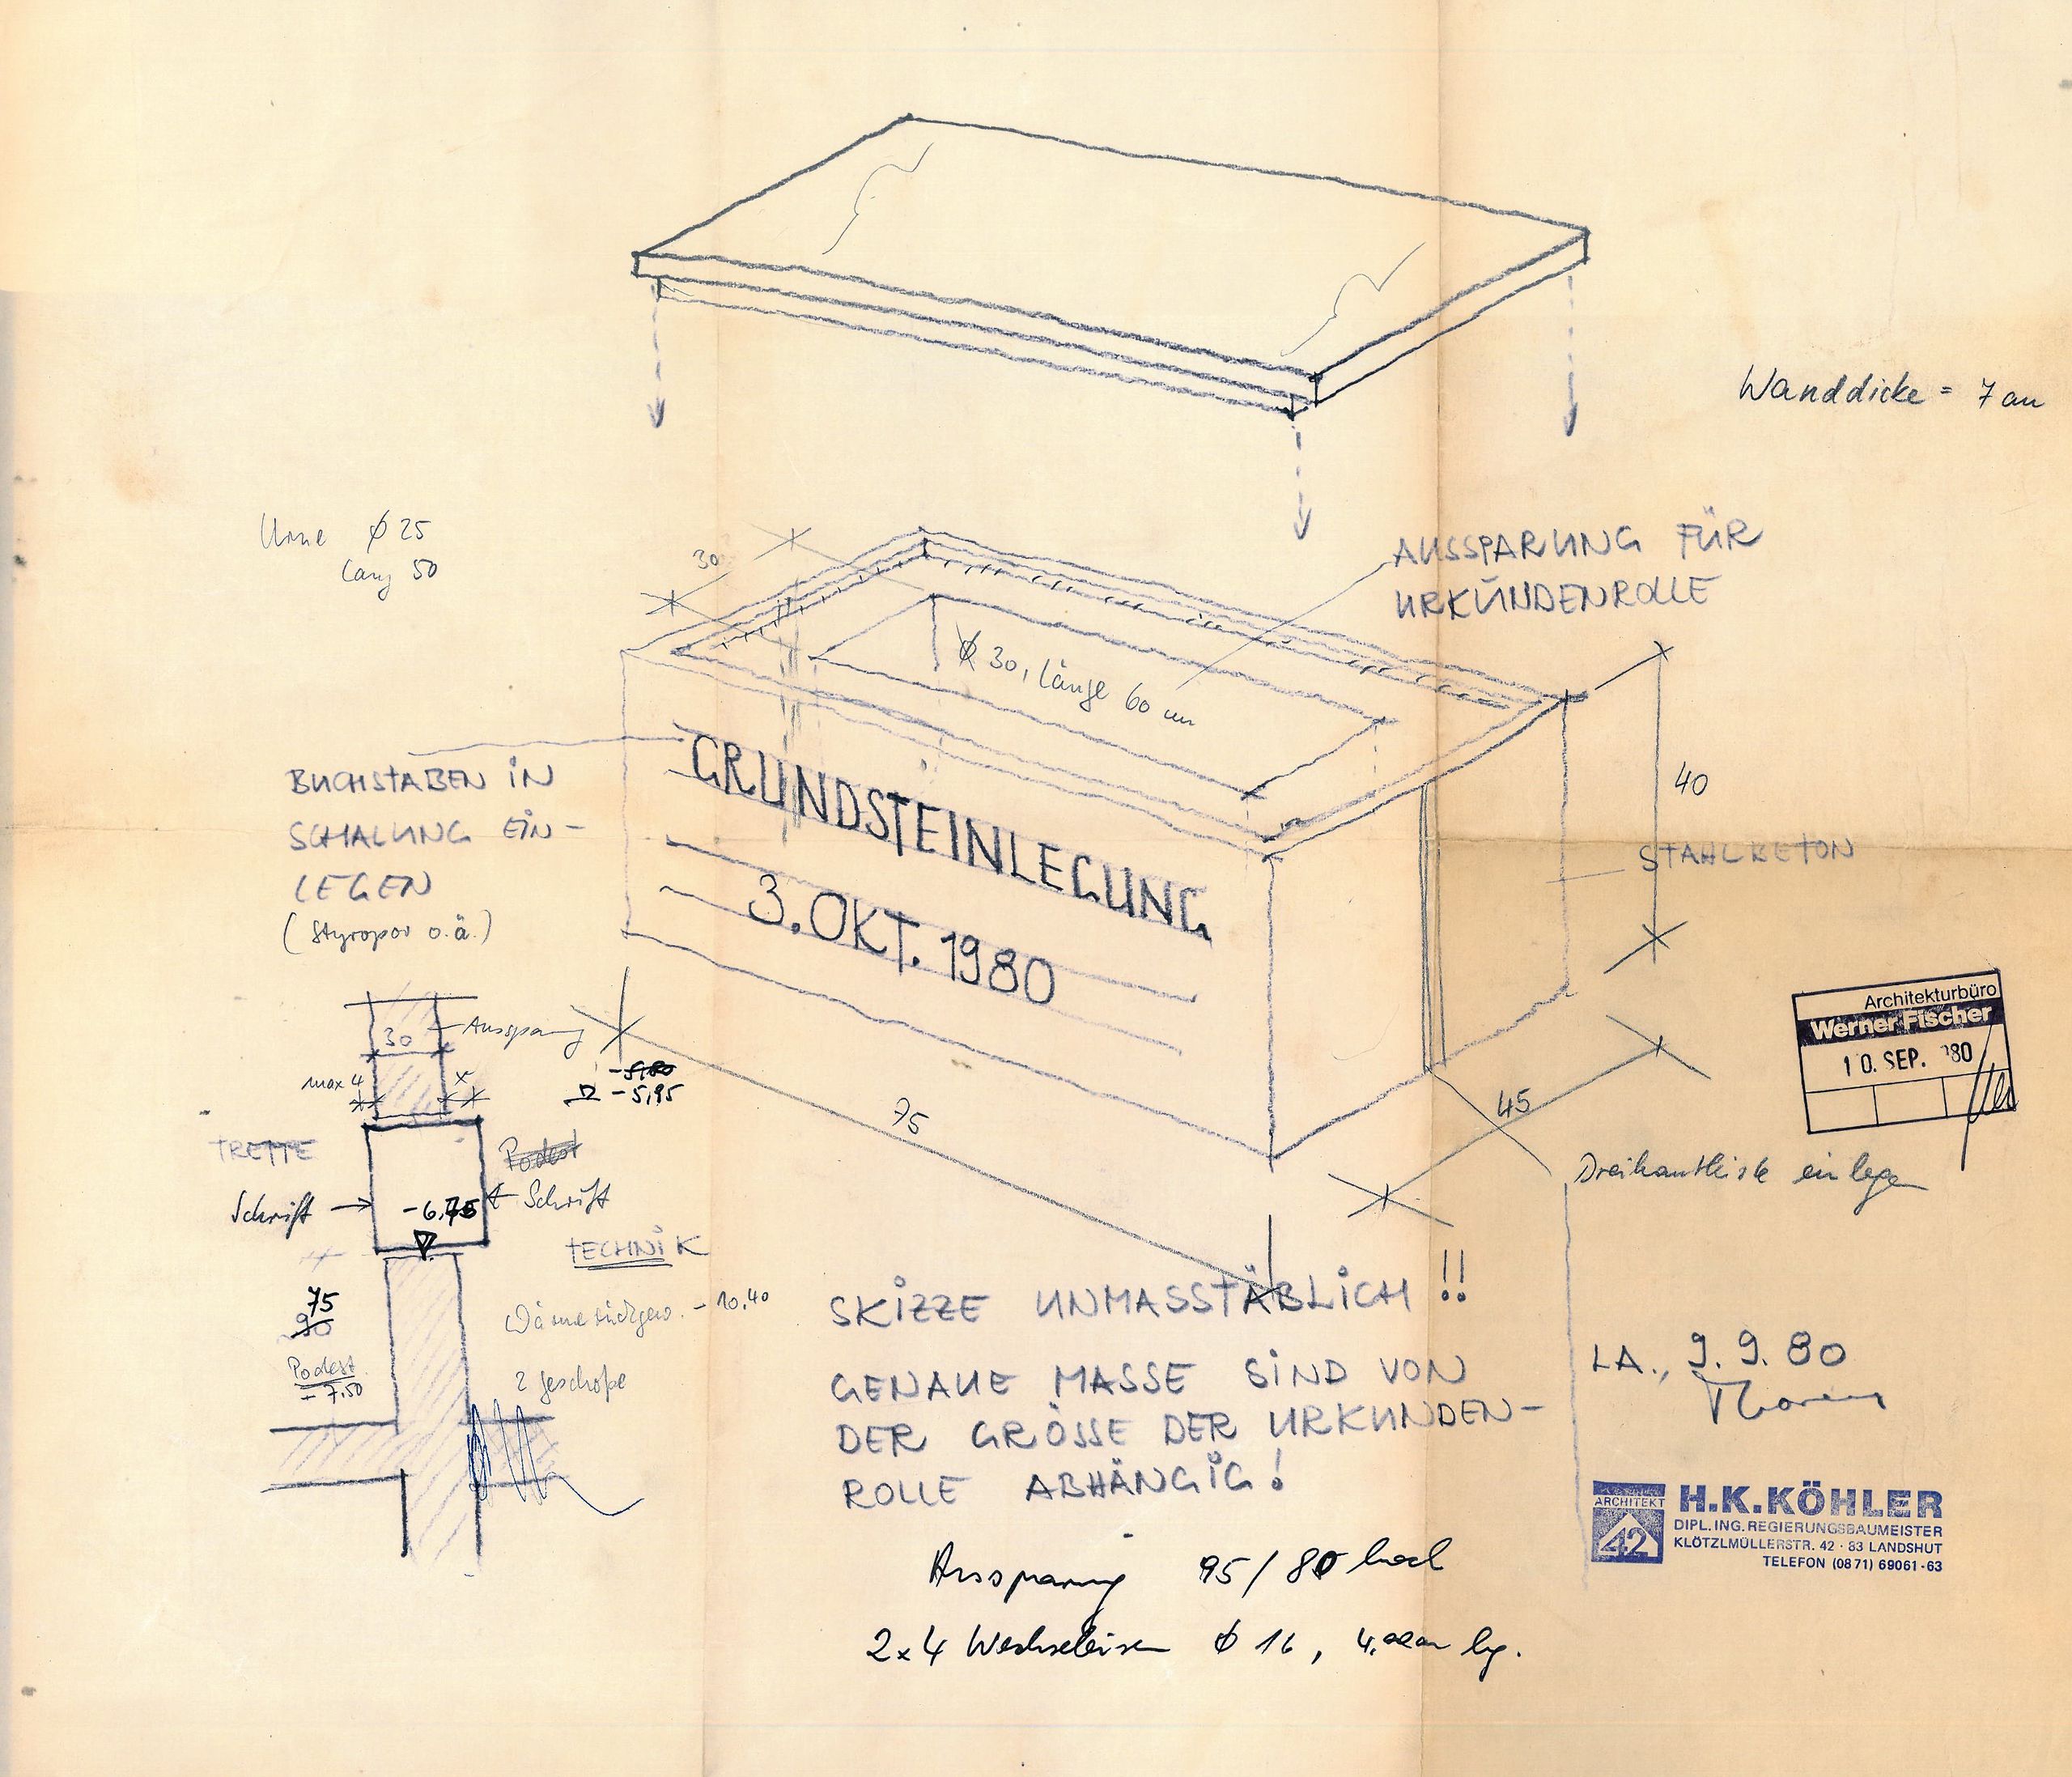 Wanddicke = 7 cm
Urne ∅ 25
lang 50
30
AUSSPARUNG FÜR
URKUNDENROLLE
∅ 30, Länge 60 cm
40
STAHLBETON
BUCHSTABEN IN
SCHALUNG EIN-
LEGEN
(Styropor o.ä.)
GRUNDSTEINLEGUNG
3. OKT. 1980
Architekturbüro
Werner Fischer
10. SEP. 80
30
Aussparung
max 4
x
-5,95
75
45
Dreikantleiste einlegen
TREPPE
Podest
Schrift
-6,75
Schrift
TECHNIK
75
90
Wärmerückgew. -10,40
Podest
-7,50
2 Geschoße
SKIZZE UNMASSTÄBLICH !!
GENAUE MASSE SIND VON
DER GRÖSSE DER URKUNDEN-
ROLLE ABHÄNGIG!
LA., 9. 9. 80
ARCHITEKT
42
H.K.KÖHLER
DIPL.ING.REGIERUNGSBAUMEISTER
KLÖTZLMÜLLERSTR. 42 · 83 LANDSHUT
TELEFON (0871) 69061-63
Aussparung 95/80 hoch
2x4 Wechseleisen ∅ 16, lg.